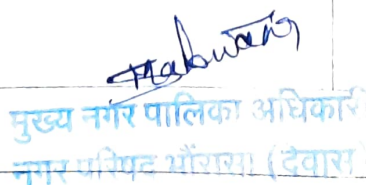 मुख्य नगर पालिका अधिकारी
नगर परिषद भौंरासा (देवास